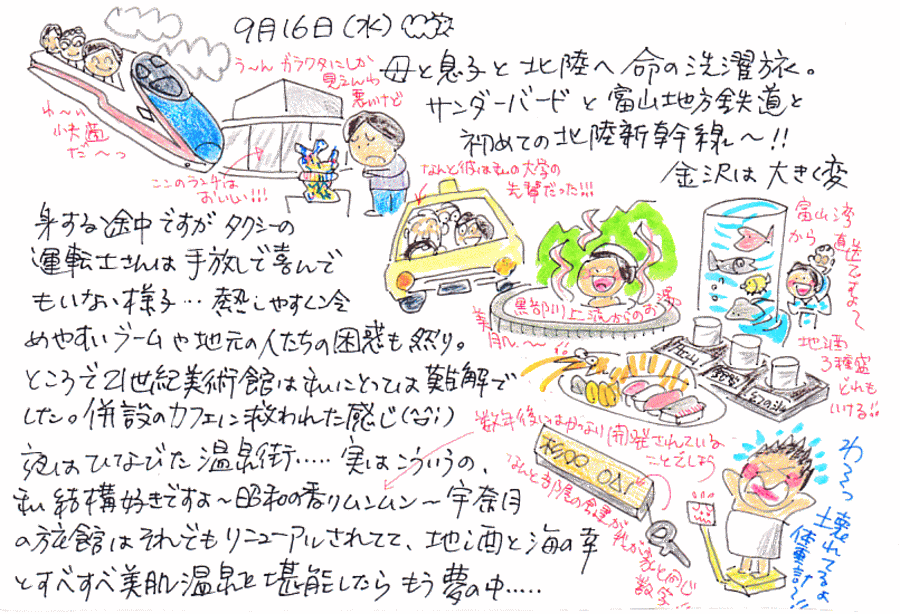 9月16日(水)
母と息子と北陸へ命の洗濯旅。
サンダーバードと富山地方鉄道と
初めての北陸新幹線〜!!
金沢は大きく変
身する途中ですがタクシーの
運転士さんは手放しで喜んで
もいない様子…熱しやすく冷
めやすいブームや地元の人たちの困惑も然り。
ところで21世紀美術館は私にとっては難解で
した。併設のカフェに救われた感じ(笑)
夜はひなびた温泉街……実はこういうの、
私結構好きですよ〜昭和の香りムンムン〜宇奈月
の旅館はそれでもリニューアルされてて、地酒と海の幸
とすべすべ美肌温泉を堪能したらもう夢の中……
わ〜い
快適
だ〜っ
う〜んガラクタにしか
見えんわ
悪いけど
ここのランチは
おいしい!!!
なんと彼は私の大学の
先輩だった!!!
黒部川上流からのお湯
美肌〜!!
富山湾
から直送ですよ〜
地酒
3種盛
どれも
いける!!
数年後にはかっより(再)発されている
ことでしょう
なんとお部屋の名達が
我が家と同じ
数字
わ〜っ壊れてるよ
体重計〜!!